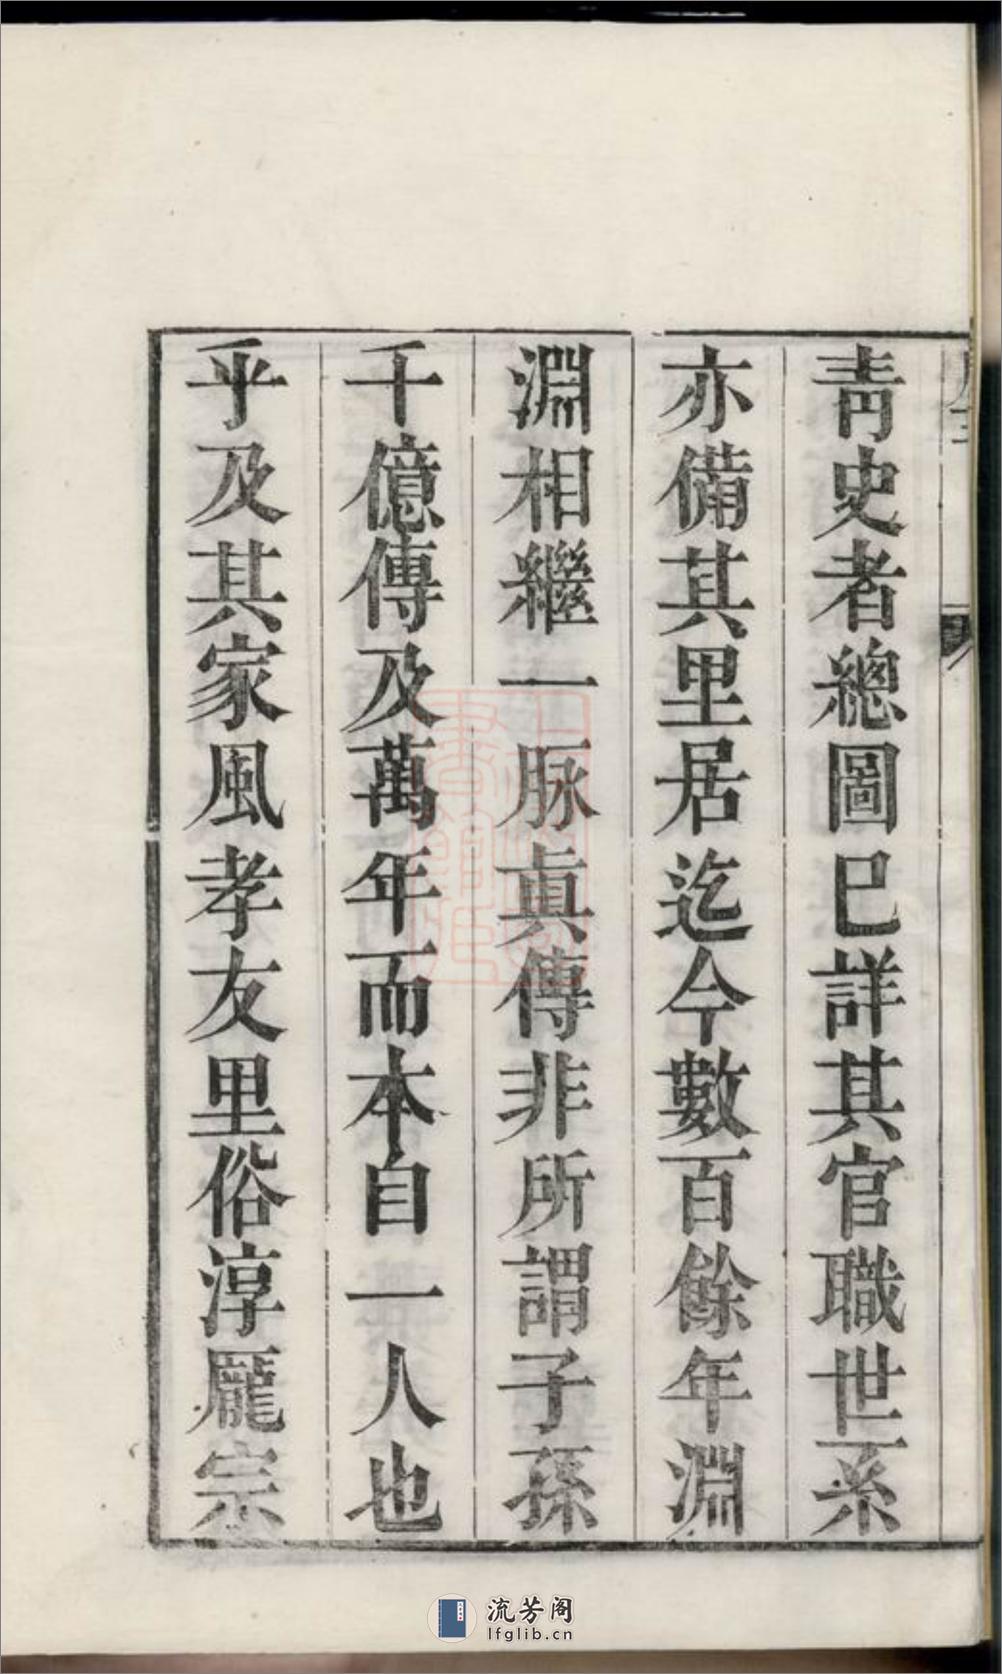 青史者總圖已詳其官職世系
亦備其里居迄今數百餘年淵
淵相繼一脉真傳非所謂子孫
千億傳及萬年而本自一人也
乎及其家風孝友里俗淳龐宗
流芳阁
lfglib.cn